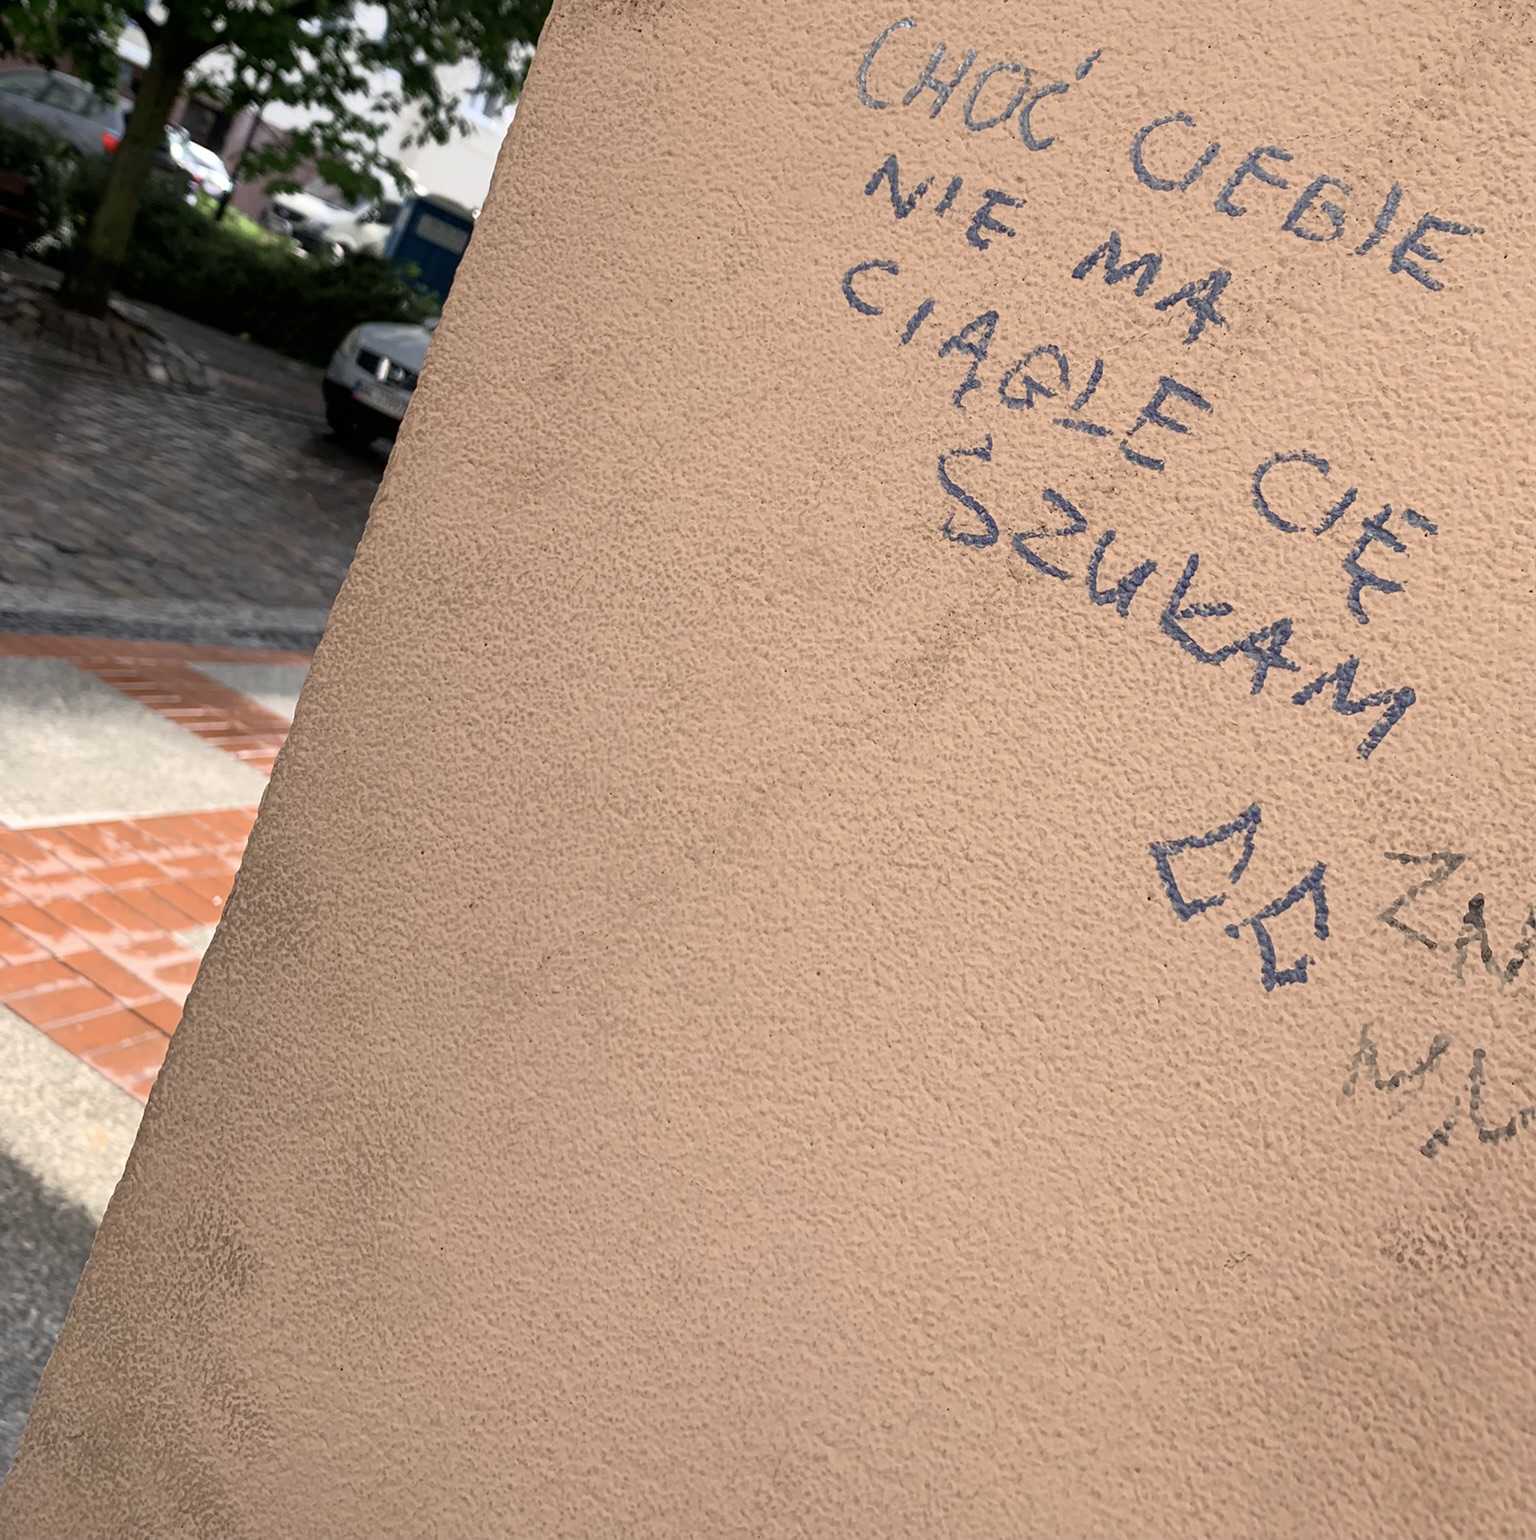 CHOĆ CIEBIE
NIE MA
CIĄGLE CIĘ
SZUKAM